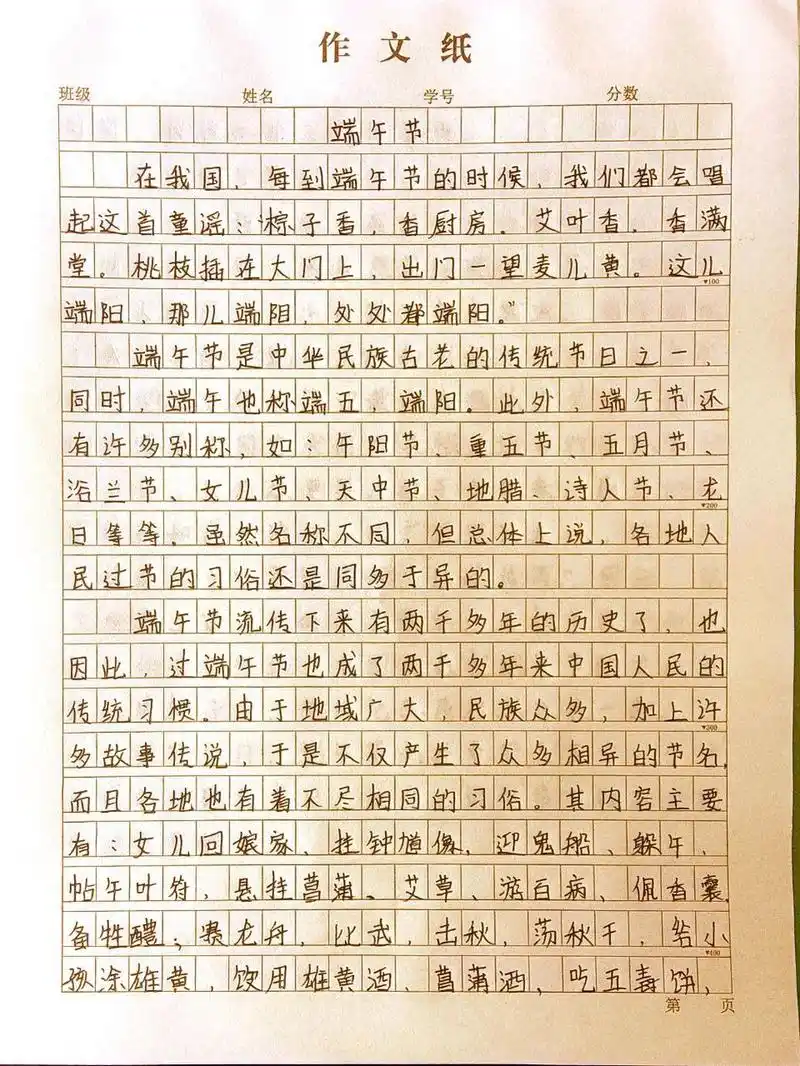 作文纸
班级 姓名 学号 分数
端午节
在我国，每到端午节的时候，我们都会唱
起这首童谣：“棕子香，香厨房。艾叶香，香满
堂。桃枝插在大门上，出门一望麦儿黄。这儿
▼100
端阳，那儿端阳，处处都端阳。”
端午节是中华民族古老的传统节日之一，
同时，端午也称端五，端阳。此外，端午节还
有许多别称，如：午阳节、重五节、五月节、
浴兰节、女儿节、天中节、地腊、诗人节、龙
▼200
日等等。虽然名称不同，但总体上说，各地人
民过节的习俗还是同多于异的。
端午节流传下来有两千多年的历史了，也
因此，过端午节也成了两千多年来中国人民的
传统习惯。由于地域广大，民族众多，加上许
▼300
多故事传说，于是不仅产生了众多相异的节名，
而且各地也有着不尽相同的习俗。其内容主要
有：女儿回嫁家、挂钟馗像，迎鬼船、躲午、
帖午叶符，悬挂菖蒲、艾草、游百病、佩香囊
备牲醴；赛龙舟，比武，击秋，荡秋千，给小
▼400
孩涂雄黄，饮用雄黄酒、菖蒲酒，吃五毒饼，
第 页